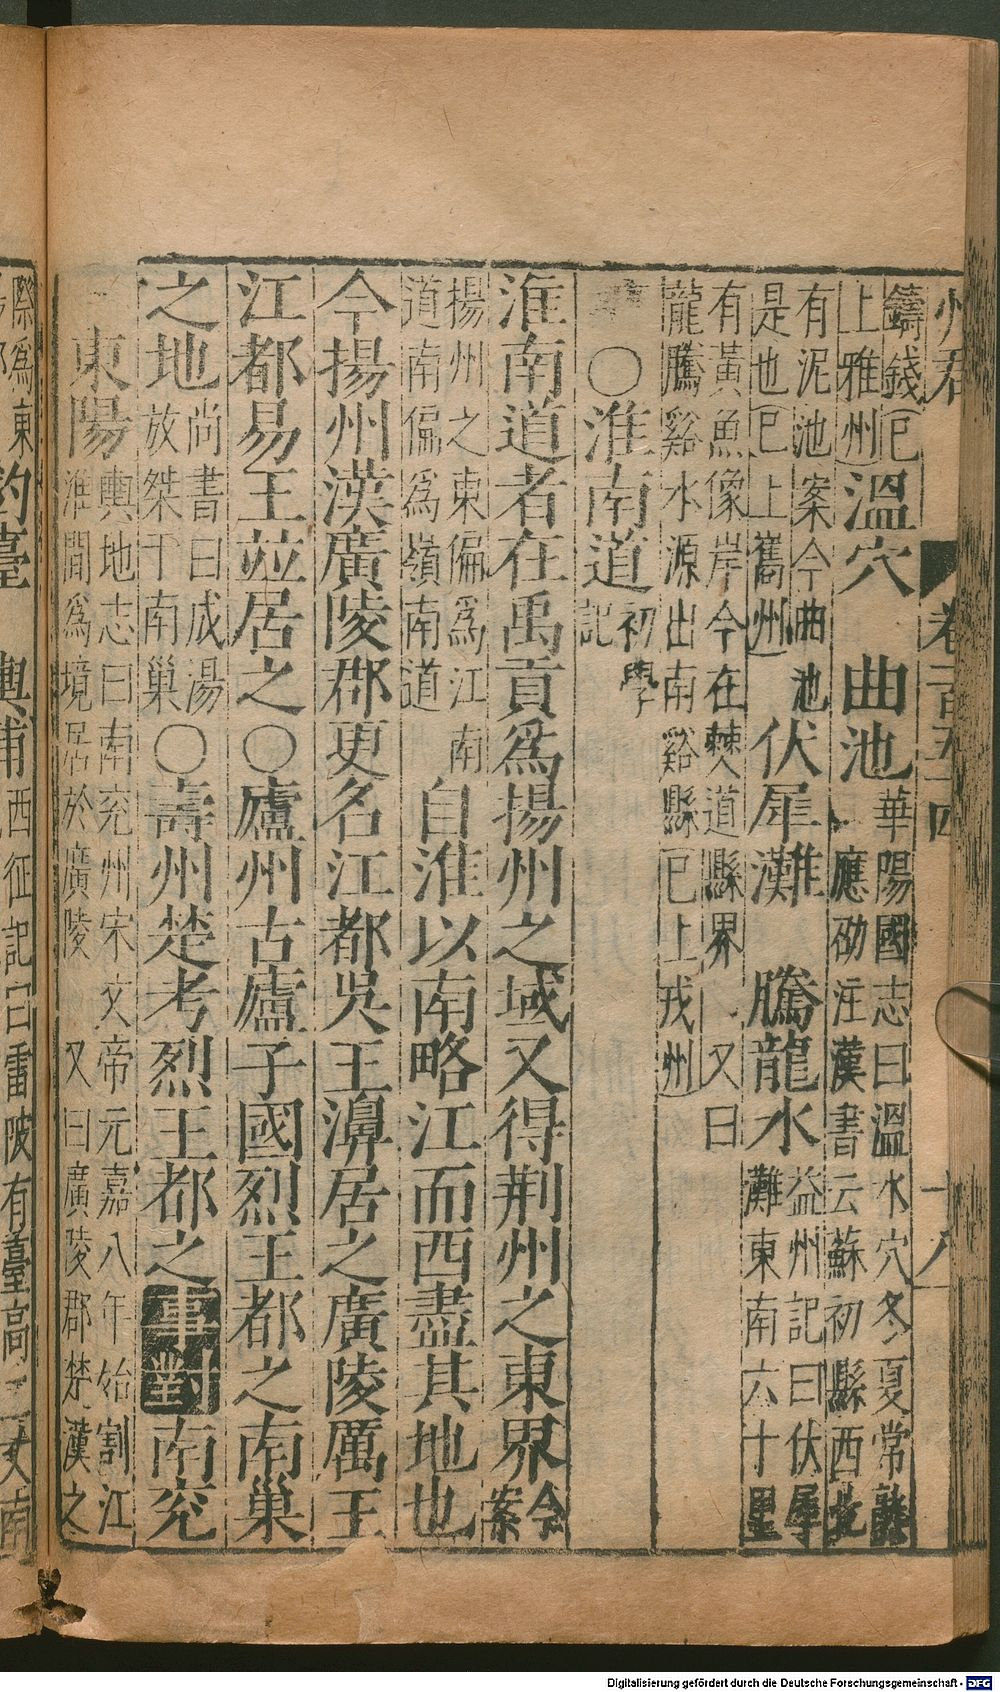 卷一百五十四
十八
鑄錢(已上雅州)溫穴 華陽國志曰溫水穴冬夏常熱 曲池 應劭注漢書云蘇初縣西北
有泥池案今曲池是也(已上巂州)伏犀灘 益州記曰伏犀灘東南六十里
有黃魚像岸今在僰道縣界 又曰 騰龍水
龍騰谿水源出南谿縣(已上戎州)
○淮南道 初學記
淮南道者在禹貢爲揚州之域又得荆州之東界今案
揚州之東偏爲江南道南偏爲嶺南道 自淮以南略江而西盡其地也
今揚州漢廣陵郡更名江都吳王濞居之廣陵厲王
江都易王竝居之○廬州古廬子國烈王都之南巢
之地 尚書曰成湯放桀于南巢 ○壽州楚考烈王都之事對南兖
東陽 輿地志曰南兖州宋文帝元嘉八年始割江淮間爲境居於廣陵 又曰廣陵郡楚漢之
際爲東
釣臺 輿浦 西征記曰雷陂有臺高二丈南